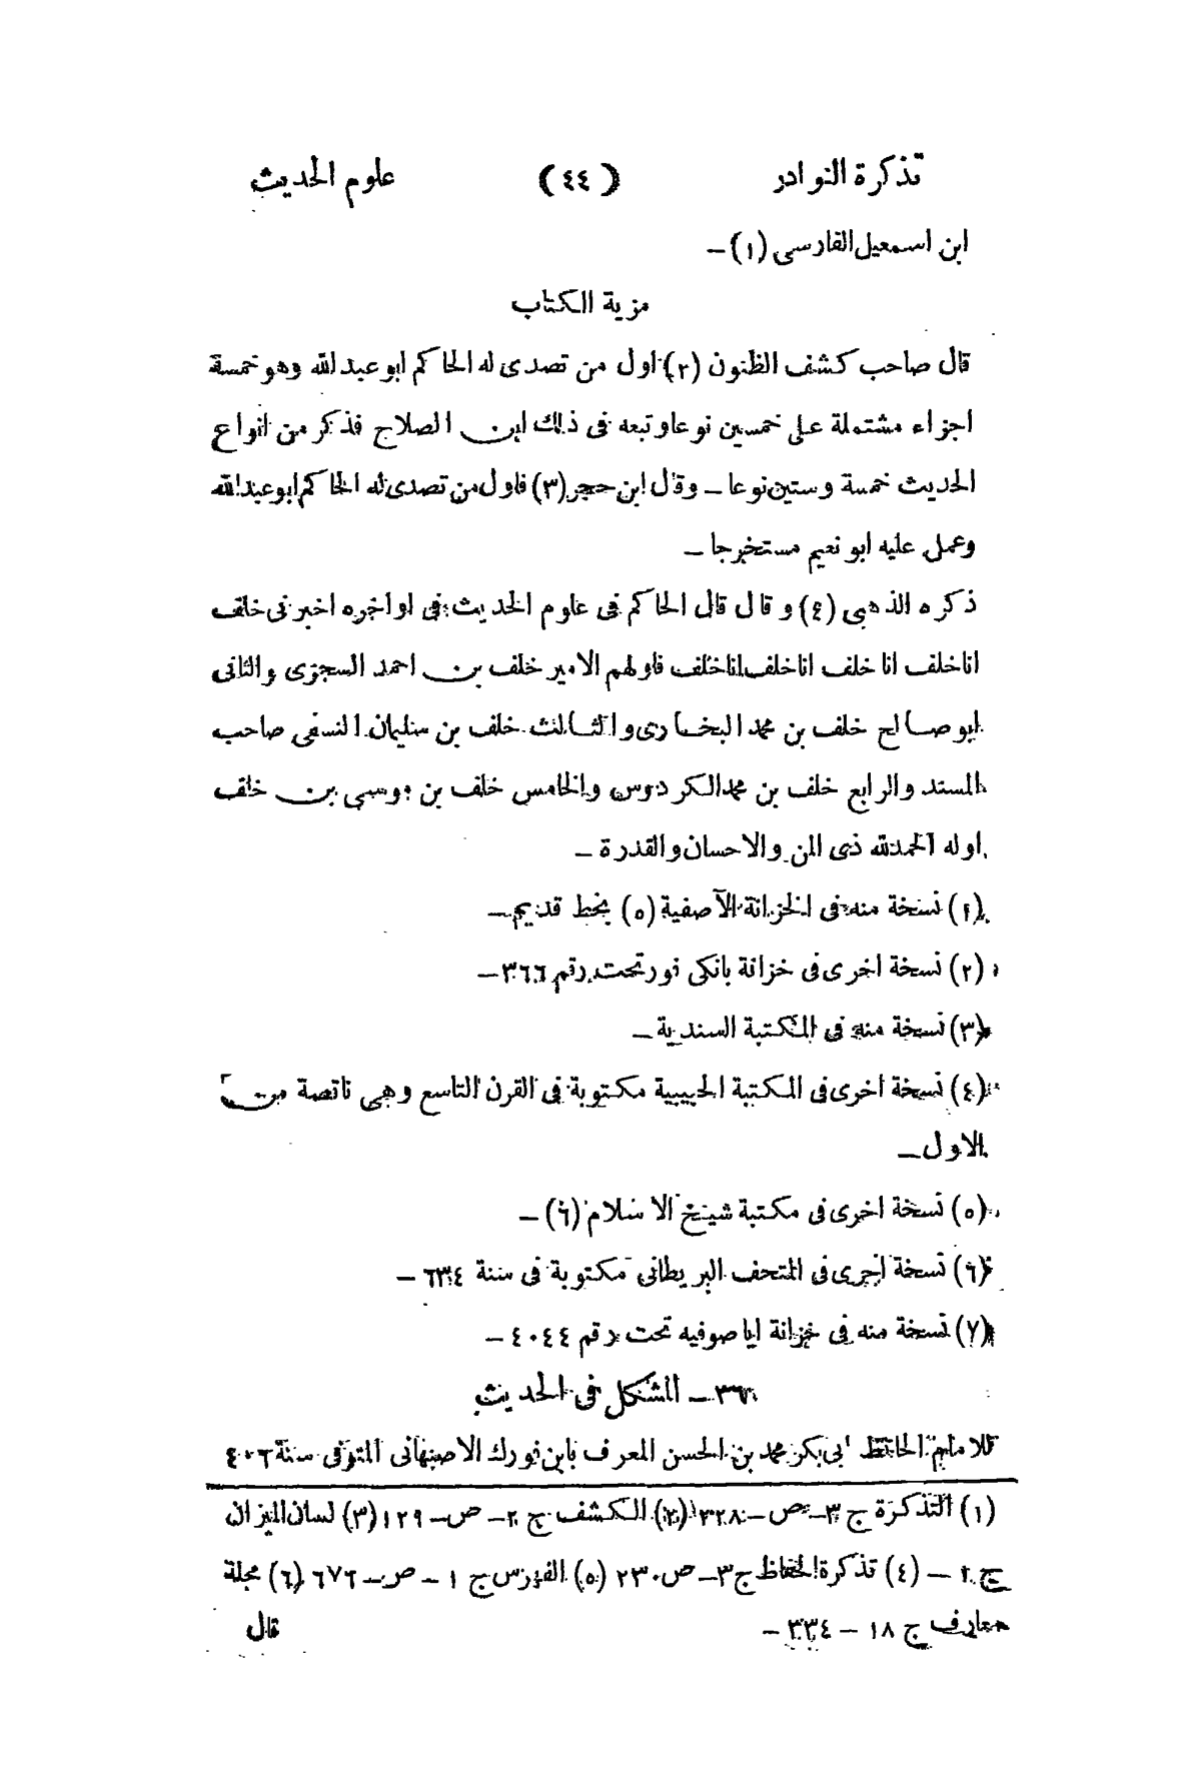 تذكرة النوادر (٤٤) علوم الحديث
ابن اسمعيل الفارسى (١) –
مزية الكتاب
قال صاحب كشف الظنون (٢) اول من تصدى له الحاكم ابو عبد الله وهو خمسة
اجزاء مشتملة على خمسين نوعا وتبعه فى ذلك ابن الصلاح فذكر من انواع
الحديث خمسة وستين نوعا – وقال ابن حجر (٣) فاول من تصدى له الحاكم ابو عبد الله
وعمل عليه ابو نعيم مستخرجا –
ذكره الذهبى (٤) وقال قال الحاكم فى علوم الحديث فى اواخره اخبرنى خلف
انا خلف انا خلف انا خلف انا خلف فاولهم الامير خلف بن احمد السجزى والثانى
ابو صالح خلف بن محمد البخارى والثالث خلف بن سليمان النسفى صاحب
المسند والرابع خلف بن محمد الكردوس والخامس خلف بن موسى بن خلف
اوله الحمد لله ذى المن والاحسان والقدرة –
(١) نسخة منه فى الخزانة الآصفية (٥) بخط قديم –
(٢) نسخة اخرى فى خزانة بانكى فور تحت رقم ٣٦٦ –
(٣) نسخة منه فى المكتبة السندية –
(٤) نسخة اخرى فى المكتبة الحبيبية مكتوبة فى القرن التاسع وهى ناقصة من
الاول –
(٥) نسخة اخرى فى مكتبة شيخ الاسلام (٦) –
(٦) نسخة اخرى فى المتحف البريطانى مكتوبة فى سنة ٦٣٤ –
(٧) نسخة منه فى خزانة ايا صوفيه تحت رقم ٤٠٤٤ –
٣٦ – المشكل فى الحديث
للامام الحافظ ابى بكر محمد بن الحسن المعرف بابن فورك الاصبهانى المتوفى سنة ٤٠٦
(١) التذكرة ج ٣ – ص – ٣٢٨ (٢) الكشف ج ٢ – ص – ١٢٩ (٣) لسان الميزان
ج ١ – (٤) تذكرة الحفاظ ج ٣ – ص ٢٣٠ (٥) الفهرس ج ١ – ص – ٦٧٦ (٦) مجلة
معارف ج ١٨ – ٣٣٤ – قال